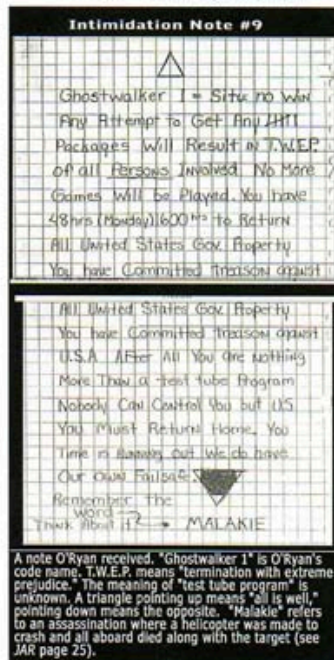 Intimidation Note #9
Ghostwalker 1 = Situ: no WIN
Any Attempt to Get Any
Packages Will Result in T.W.E.P.
of all Persons Involved No More
Games Will be Played. You have
48hrs (Monday) 1600 hrs to Return
All United States Gov. Property
You have Committed treason against
All United States Gov. Property
You have Committed treason against
U.S.A. After All You are Nothing
More Than a test tube Program
Nobody Can Control You but US
You Must Return Home. You
Time is Running out We do have
Our Own Failsafe.
Remember the
word
Think About it MALAKIE
A note O'Ryan received. "Ghostwalker 1" is O'Ryan's
code name. T.W.E.P. means "termination with extreme
prejudice." The meaning of "test tube program" is
unknown. A triangle pointing up means "all is well,"
pointing down means the opposite. "Malakie" refers
to an assassination where a helicopter was made to
crash and all aboard died along with the target (see
JAR page 25).